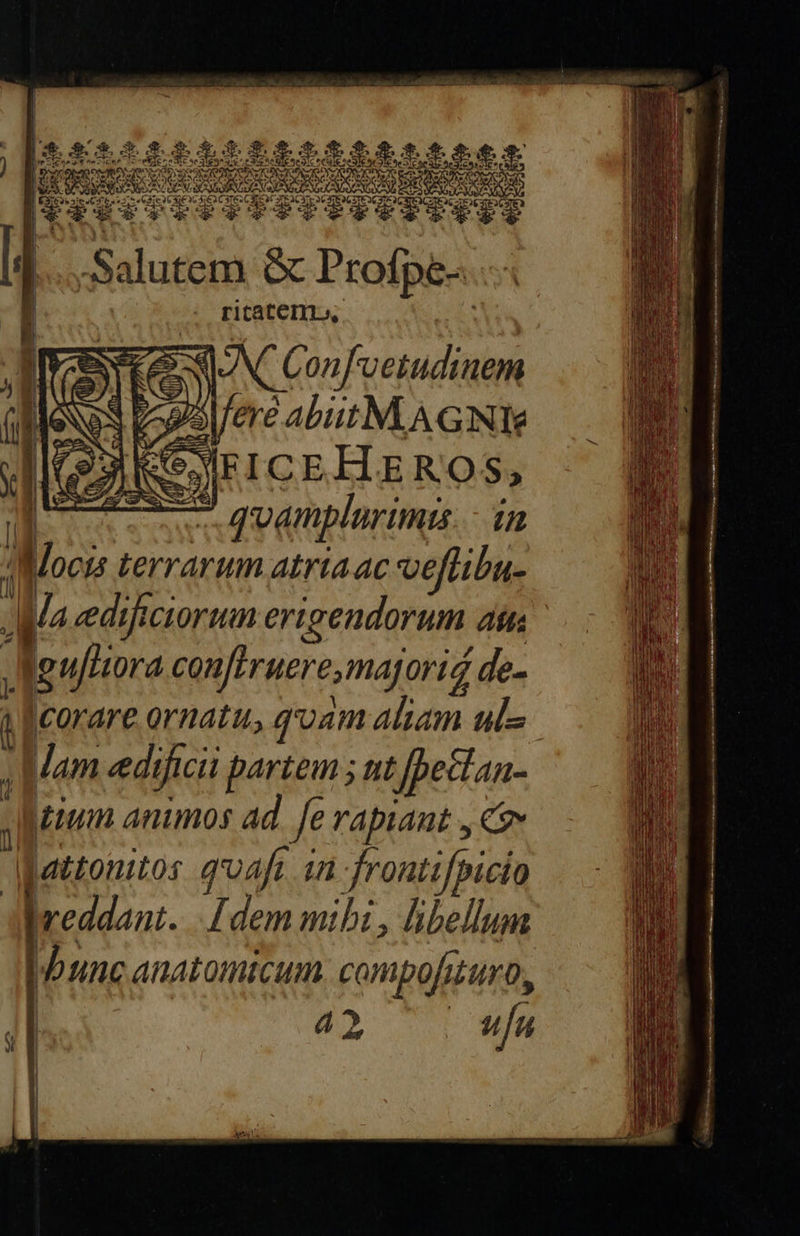 Salutem & Proſpe-
ritatem,
IN Conſvetudinem
ferè abiit MAGNI-
FICE HEROS,
qvamplurimis in
locis terrarum atria ac veſtibu-
la ædificiorum erigendorum au-
guſtiora conſtruere, majoriq́ de-
corare ornatu, qvàm aliam ul-
lam ædificii partem; ut ſpectan-
tium animos ad ſe rapiant, &
attonitos qvaſi in frontiſpicio
reddant. Idem mihi, libellum
hunc anatomicum compoſituro,
a2 uſu